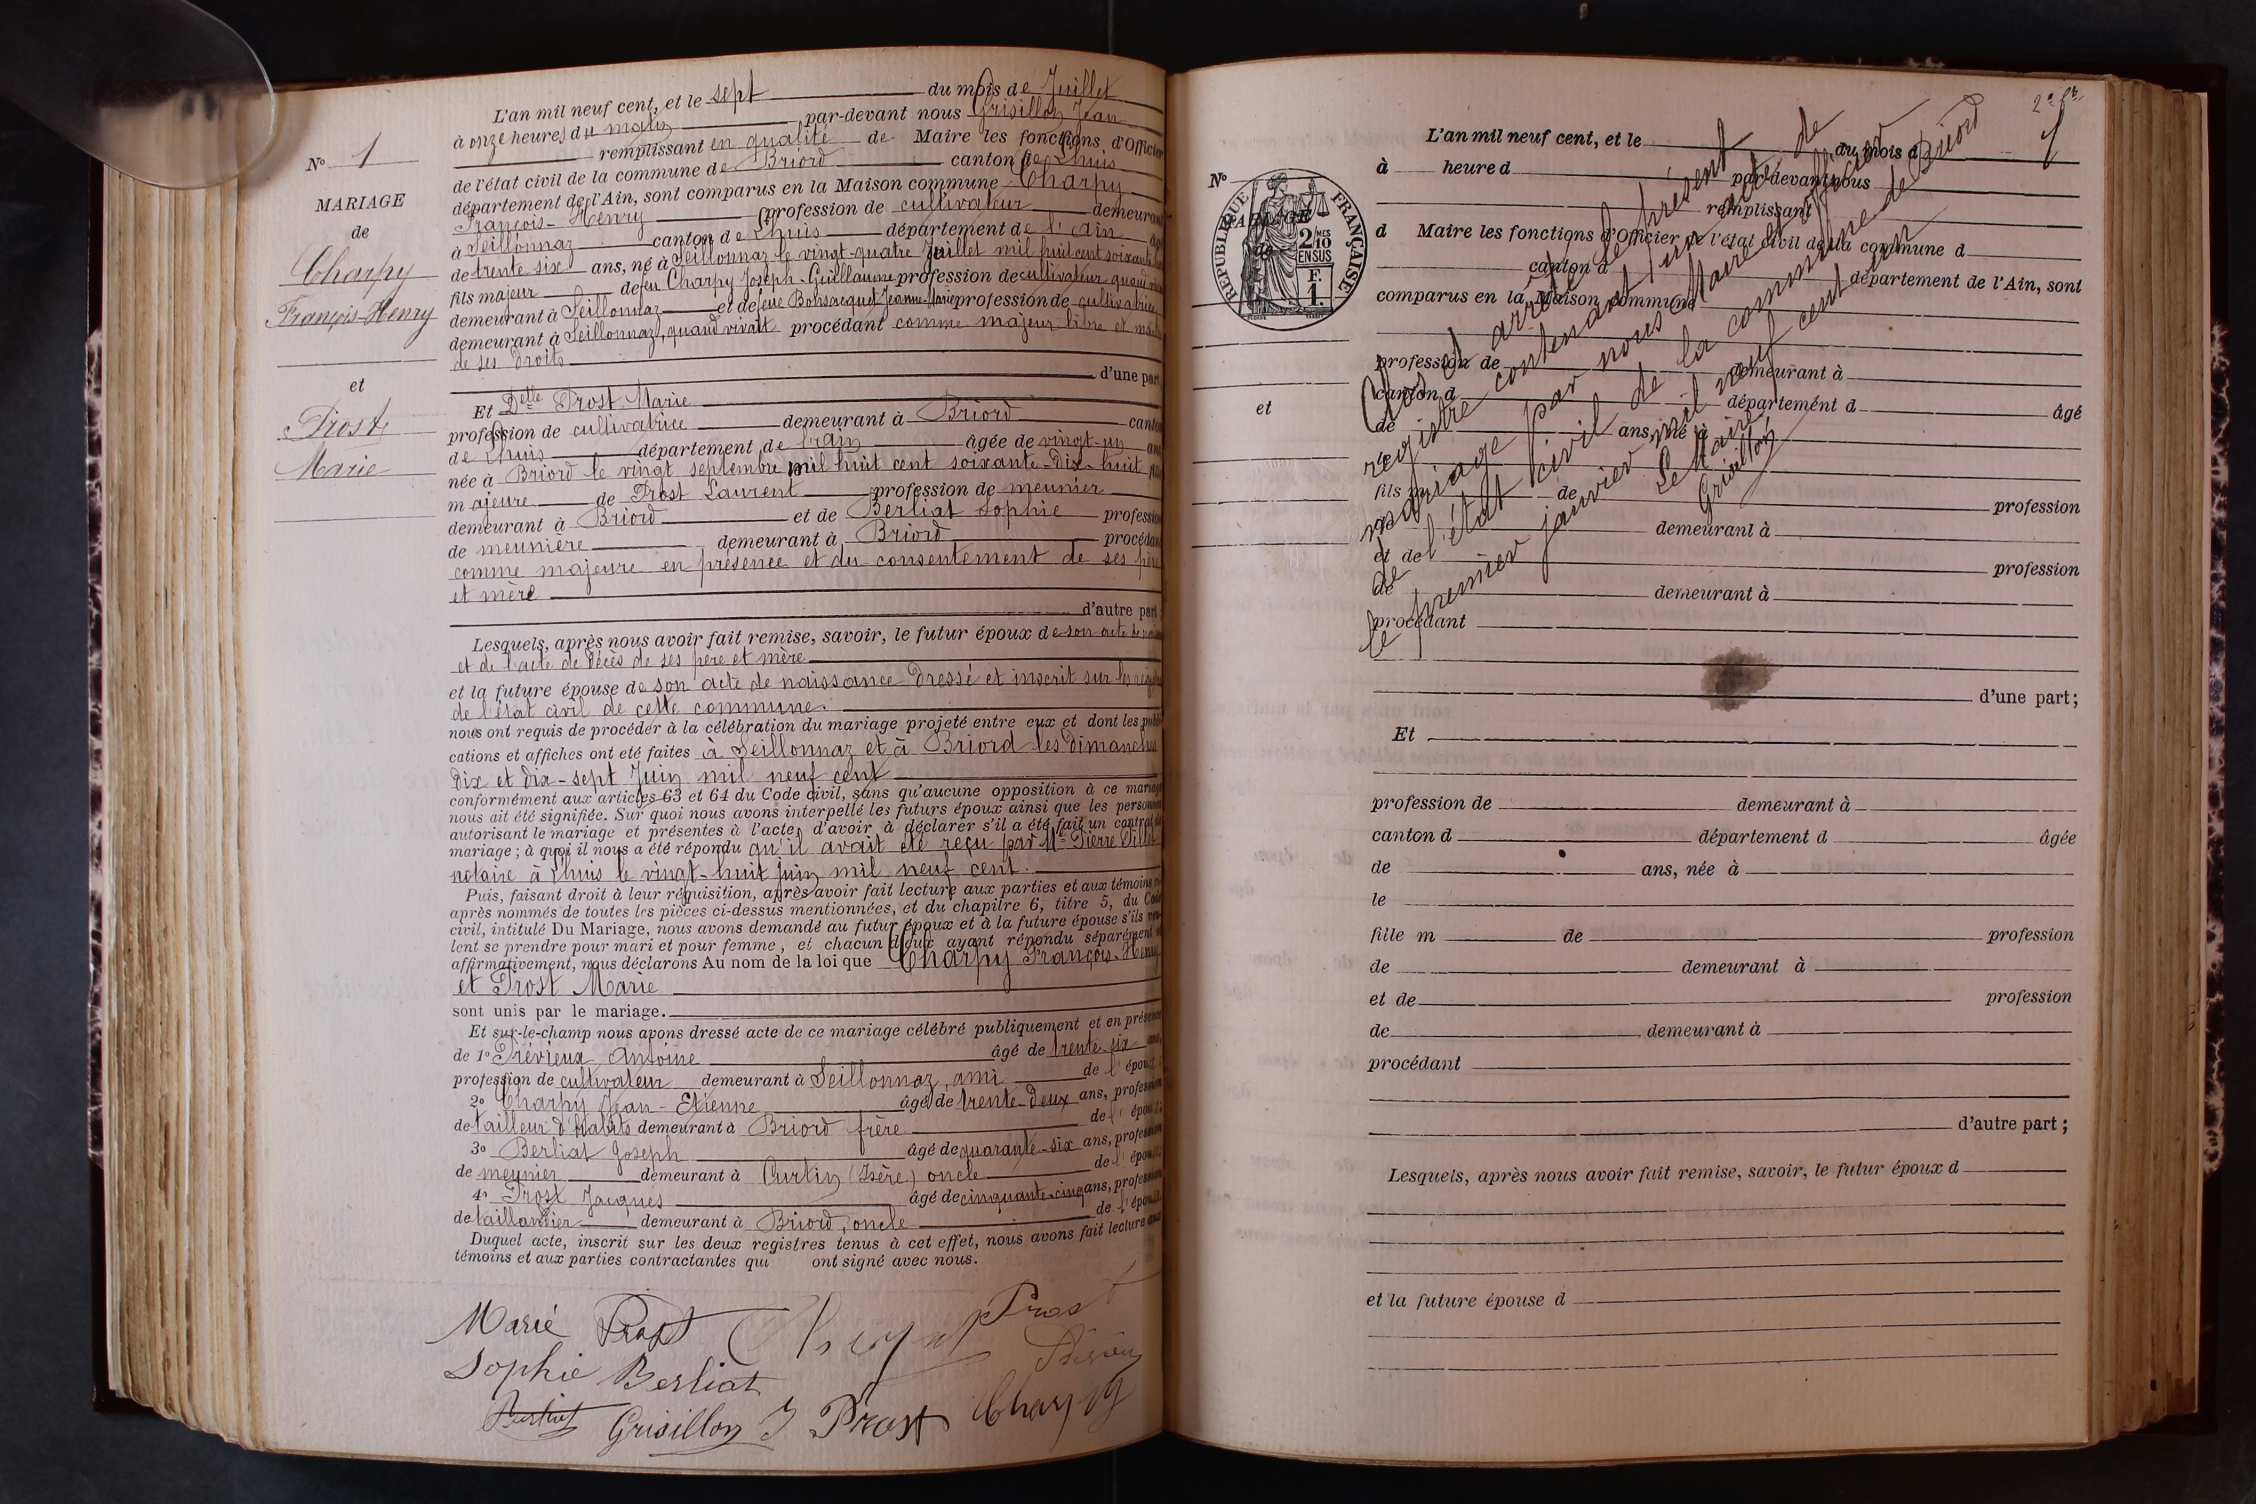 N° 1
MARIAGE
de
Charpy
François-Henry
et
Prost
Marie
L'an mil neuf cent, et le sept du mois de Juillet
à onze heures du matin par-devant nous Grisillon Jean
remplissant en qualité de Maire les fonctions d'Officier
de l'état civil de la commune de Briord canton de Lhuis
département de l'Ain, sont comparus en la Maison commune Charpy
François-Henry profession de cultivateur demeurant
à Seillonnaz canton de Lhuis département de l'Ain âgé
de trente six ans, né à Seillonnaz le vingt-quatre Juillet mil huit cent soixante
fils majeur de feu Charpy Joseph-Guillaume profession de cultivateur quand
demeurant à Seillonnaz et de feue Jeanne-Marie profession de cultivatrice
demeurant à Seillonnaz, quand vivait procédant comme majeur libre et
de ses droits
d'une part
Et Delle Prost Marie
profession de cultivatrice demeurant à Briord canton
de Lhuis département de l'ain âgée de vingt-un ans
née à Briord le vingt septembre mil huit cent soixante-dix-huit fille
majeure de Prost Laurent profession de meunier
demeurant à Briord et de Berliat Sophie profession
de meunière demeurant à Briord procédant
comme majeure en présence et du consentement de ses père
et mère
d'autre part;
Lesquels, après nous avoir fait remise, savoir, le futur époux de son acte de
et de l'acte de décès de ses père et mère
et la future épouse de son acte de naissance dressé et inscrit sur les
de l'état civil de cette commune.
nous ont requis de procéder à la célébration du mariage projeté entre eux et dont les publi-
cations et affiches ont été faites à Seillonnaz et à Briord les dimanches
dix et dix-sept Juin mil neuf cent
conformément aux articles 63 et 64 du Code civil, sans qu'aucune opposition à ce mariage
nous ait été signifiée. Sur quoi nous avons interpellé les futurs époux ainsi que les personnes
autorisant le mariage et présentes à l'acte, d'avoir à déclarer s'il a été fait un contrat de
mariage; à quoi il nous a été répondu qu'il avait été reçu par Me Pierre
notaire à Lhuis le vingt-huit juin mil neuf cent.
Puis, faisant droit à leur réquisition, après avoir fait lecture aux parties et aux témoins ci-
après nommés de toutes les pièces ci-dessus mentionnées, et du chapitre 6, titre 5, du Code
civil, intitulé Du Mariage, nous avons demandé au futur époux et à la future épouse s'ils veu-
lent se prendre pour mari et pour femme, et chacun d'eux ayant répondu séparément et
affirmativement, nous déclarons Au nom de la loi que Charpy François-Henry
et Prost Marie
sont unis par le mariage.
Et sur-le-champ nous avons dressé acte de ce mariage célébré publiquement et en présence
de 1° Trévieux Antoine âgé de trente six ans,
profession de cultivateur demeurant à Seillonnaz, ami de l'époux;
2° Charpy Jean-Etienne âgé de trente-deux ans, profession
de tailleur d'habits demeurant à Briord frère de l'époux;
3° Berliat Joseph âgé de quarante-six ans, profession
de meunier demeurant à Curtin (Isère) oncle de l'épouse
4° Prost Jacques âgé de cinquante-cinq ans, profession
de taillandier demeurant à Briord, oncle de l'épouse
Duquel acte, inscrit sur les deux registres tenus à cet effet, nous avons fait lecture aux
témoins et aux parties contractantes qui ont signé avec nous.
Marie Prost Charpy Prost
Sophie Berliat
Berliat Grisillon J Prost Charpy
N°
RÉPUBLIQUE FRANÇAISE
2/10 MES
EN SUS
F.
1.
et
L'an mil neuf cent, et le du mois d
à heure d par-devant nous
remplissant
d Maire les fonctions d'Officier de l'état civil de la commune d
canton d département de l'Ain, sont
comparus en la Maison commune
profession de demeurant à
canton d département d âgé
de ans, né à
le
fils m de profession
de demeurant à
et de profession
de demeurant à
procédant
d'une part;
Clos et arrêté le présent
registre contenant un acte de
mariage par nous Maire et officier
de l'état civil de la commune de Briord
le premier janvier mil neuf cent un
Le Maire,
Grisillon
Et
profession de demeurant à
canton d département d âgée
de ans, née à
le
fille m de profession
de demeurant à
et de profession
de demeurant à
procédant
d'autre part;
Lesquels, après nous avoir fait remise, savoir, le futur époux d
et la future épouse d